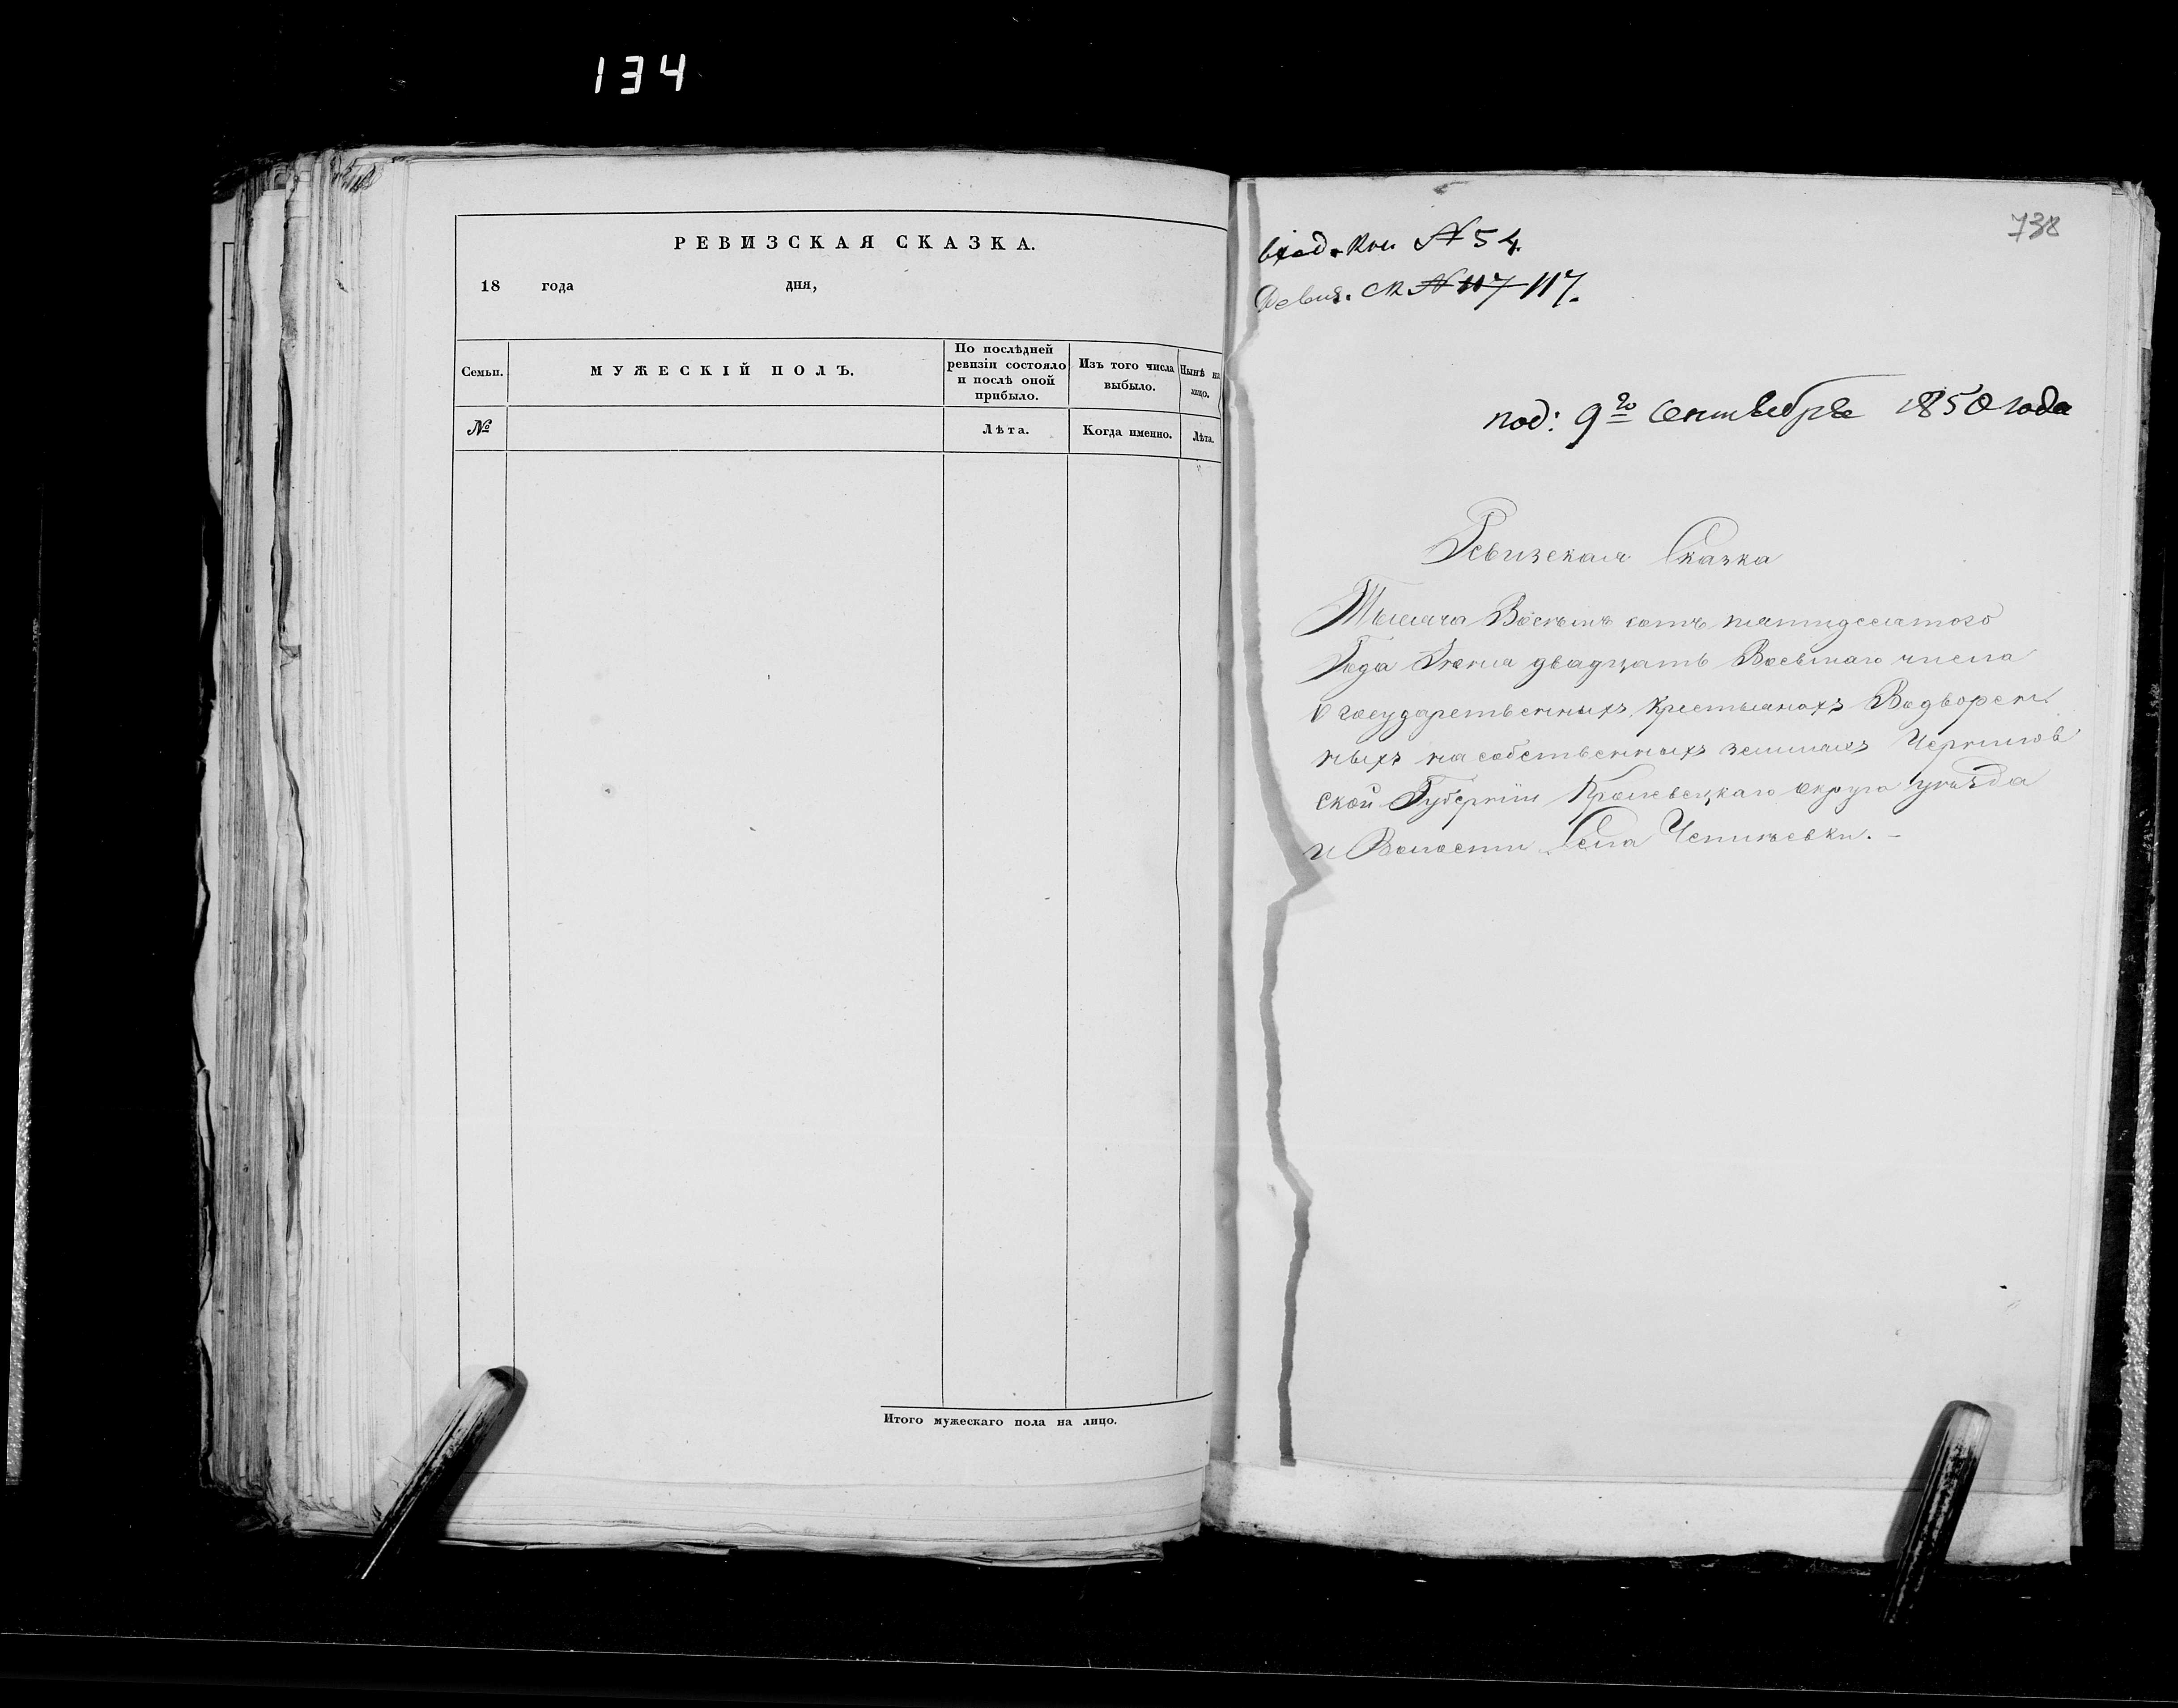 134
РЕВИЗСКАЯ СКАЗКА.
18 года дня,
Семьи. МУЖЕСКІЙ ПОЛЪ. По послѣдней ревизіи состояло и послѣ оной прибыло. Изъ того числа выбыло. Нынѣ на лицо.
№ Лѣта. Когда именно. Лѣта.
Итого мужескаго пола на лицо.
738
вход. Кни № 54.
Ревиз. ск № 117 117.
под: 9го Сентебря 1850 года
Ревизская Сказка
Тысяча Восемь сотъ пятидесятого
Года Июня двадцать Восьмаго числа
О государственныхъ крестьянахъ Водворен
ныхъ на собственныхъ земляхъ Чернигов
ской Губерніи Кролевецкаго округа уѣзда
и Волости Села Чепиѣевки.